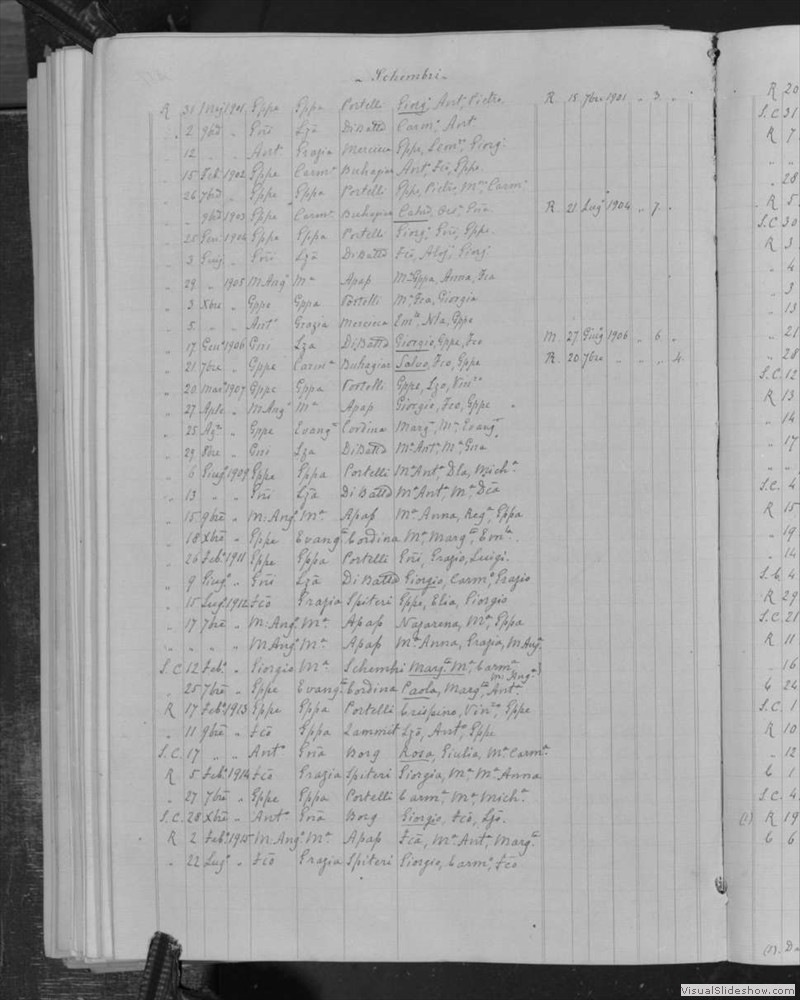 Schembri
R 31 Mag 1901 Gppe Gppa Portelli Giorg. Ant. Pietro R 15 7bre 1901 " 3 "
" 2 9bre " Gni Lza DiBatto Carm. Ant.
" 12 " " Ant. Grazia Mercieca Gppe,
" 15 Feb. 1902 Gppe Carma Buhagiar Ant. Fco, Gppe
" 26 7bre " Gppe Gppa Portelli Gppe, Pietro, Carm.
" 9bre 1903 Gppe Carma Buhagiar R 21 Lugo 1904 " 7 "
" 25 Gen. 1904 Gppe Gppa Portelli Giorg. Gni, Gppe
" 3 Giug. " Gni Lza DiBatto Fco, Aloj. Giorg.
" 29 " 1905 M. Ango Ma Apap Ma Gppa, Anna, Fca
" 3 Xbre " Gppe Gppa Portelli Ma Fca, Giorgia
" 5 " " Anto Grazia Mercieca Gppe
" 17 Geno 1906 Gni Lza DiBatto Giorgio, Gppe, Fco M. 27 Giugo 1906 " 6 "
" 21 7bre " Gppe Carma Buhagiar Salvo, Fco, Gppe R. 20 7bre " " " 4
" 20 Mar. 1907 Gppe Gppa Portelli Gppe, Lzo, Vinzo
" 27 Aple " M. Ango Ma Apap Giorgio, Fco, Gppe
" 25 " Gppe Evanga Cordina Marga, Ma, Evanga
" 29 8bre " Gni Lza DiBatto Ma Anta, Ma Gna
" 6 Giugo 1909 Gppe Gppa Portelli Ma Anta, Micha
" 13 " " Gni Lza DiBatto Ma Anta, Ma,
" 15 9bre " M. Ango Ma Apap Ma Anna, Rega, Gppa
" 18 Xbre " Gppe Evanga Cordina Ma, Marga, Ema
" 26 Febo 1911 Gppe Gppa Portelli Gni, Grazio, Luigi
" 9 Giugo " Gni Lza DiBatto Giorgio, Carmo, Grazio
" 15 Lugo 1912 Fco Grazia Spiteri Gppe, Elia, Giorgio
" 17 7bre " M. Ango Ma Apap Nazarena, Ma, Gppa
" " " " M. Ango Ma Apap Ma Anna, Grazia, M. Anga
S.C. 12 Febo " Giorgio Ma Schembri Marga, Ma, Carma
" 25 7bre " Gppe Evanga Cordina Paola, Marga, Anta
R 17 Febo 1913 Gppe Gppa Portelli Crispino, Vinzo, Gppe
" 11 9bre " Fco Gppa Zammit Lzo, Anto, Gppe
S.C. 17 " " Anto Gna Borg Rosa, Giulia, Ma Carma
R 5 Febo 1914 Fco Grazia Spiteri Giorgia, Ma, Ma Anna
" 27 7bre " Gppe Gppa Portelli Carma, Ma, Micha
S.C. 28 Xbre " Anto Gna Borg Giorgio, Fco, Lzo
R 2 Febo 1915 M. Ango Ma Apap Fca, Ma Anta, Marga
" 22 Lugo " Fco Grazia Spiteri Giorgio, Carmo, Fco
R 20
S.C. 31
R 7
" "
" 28
R 5
S.C 30
R 3
" 4
" 3
" 13
" 21
" 28
S.C. 12
R 13
" 14
" 17
" "
S.C. 4
R 15
" 19
" 14
S.C. 4
R 29
S.C. 21
R 11
" 16
C 24
S.C. 1
R 10
" 12
C 1
S.C. 4
(1) R 19
C 6
(1).
VisualSlideshow.com